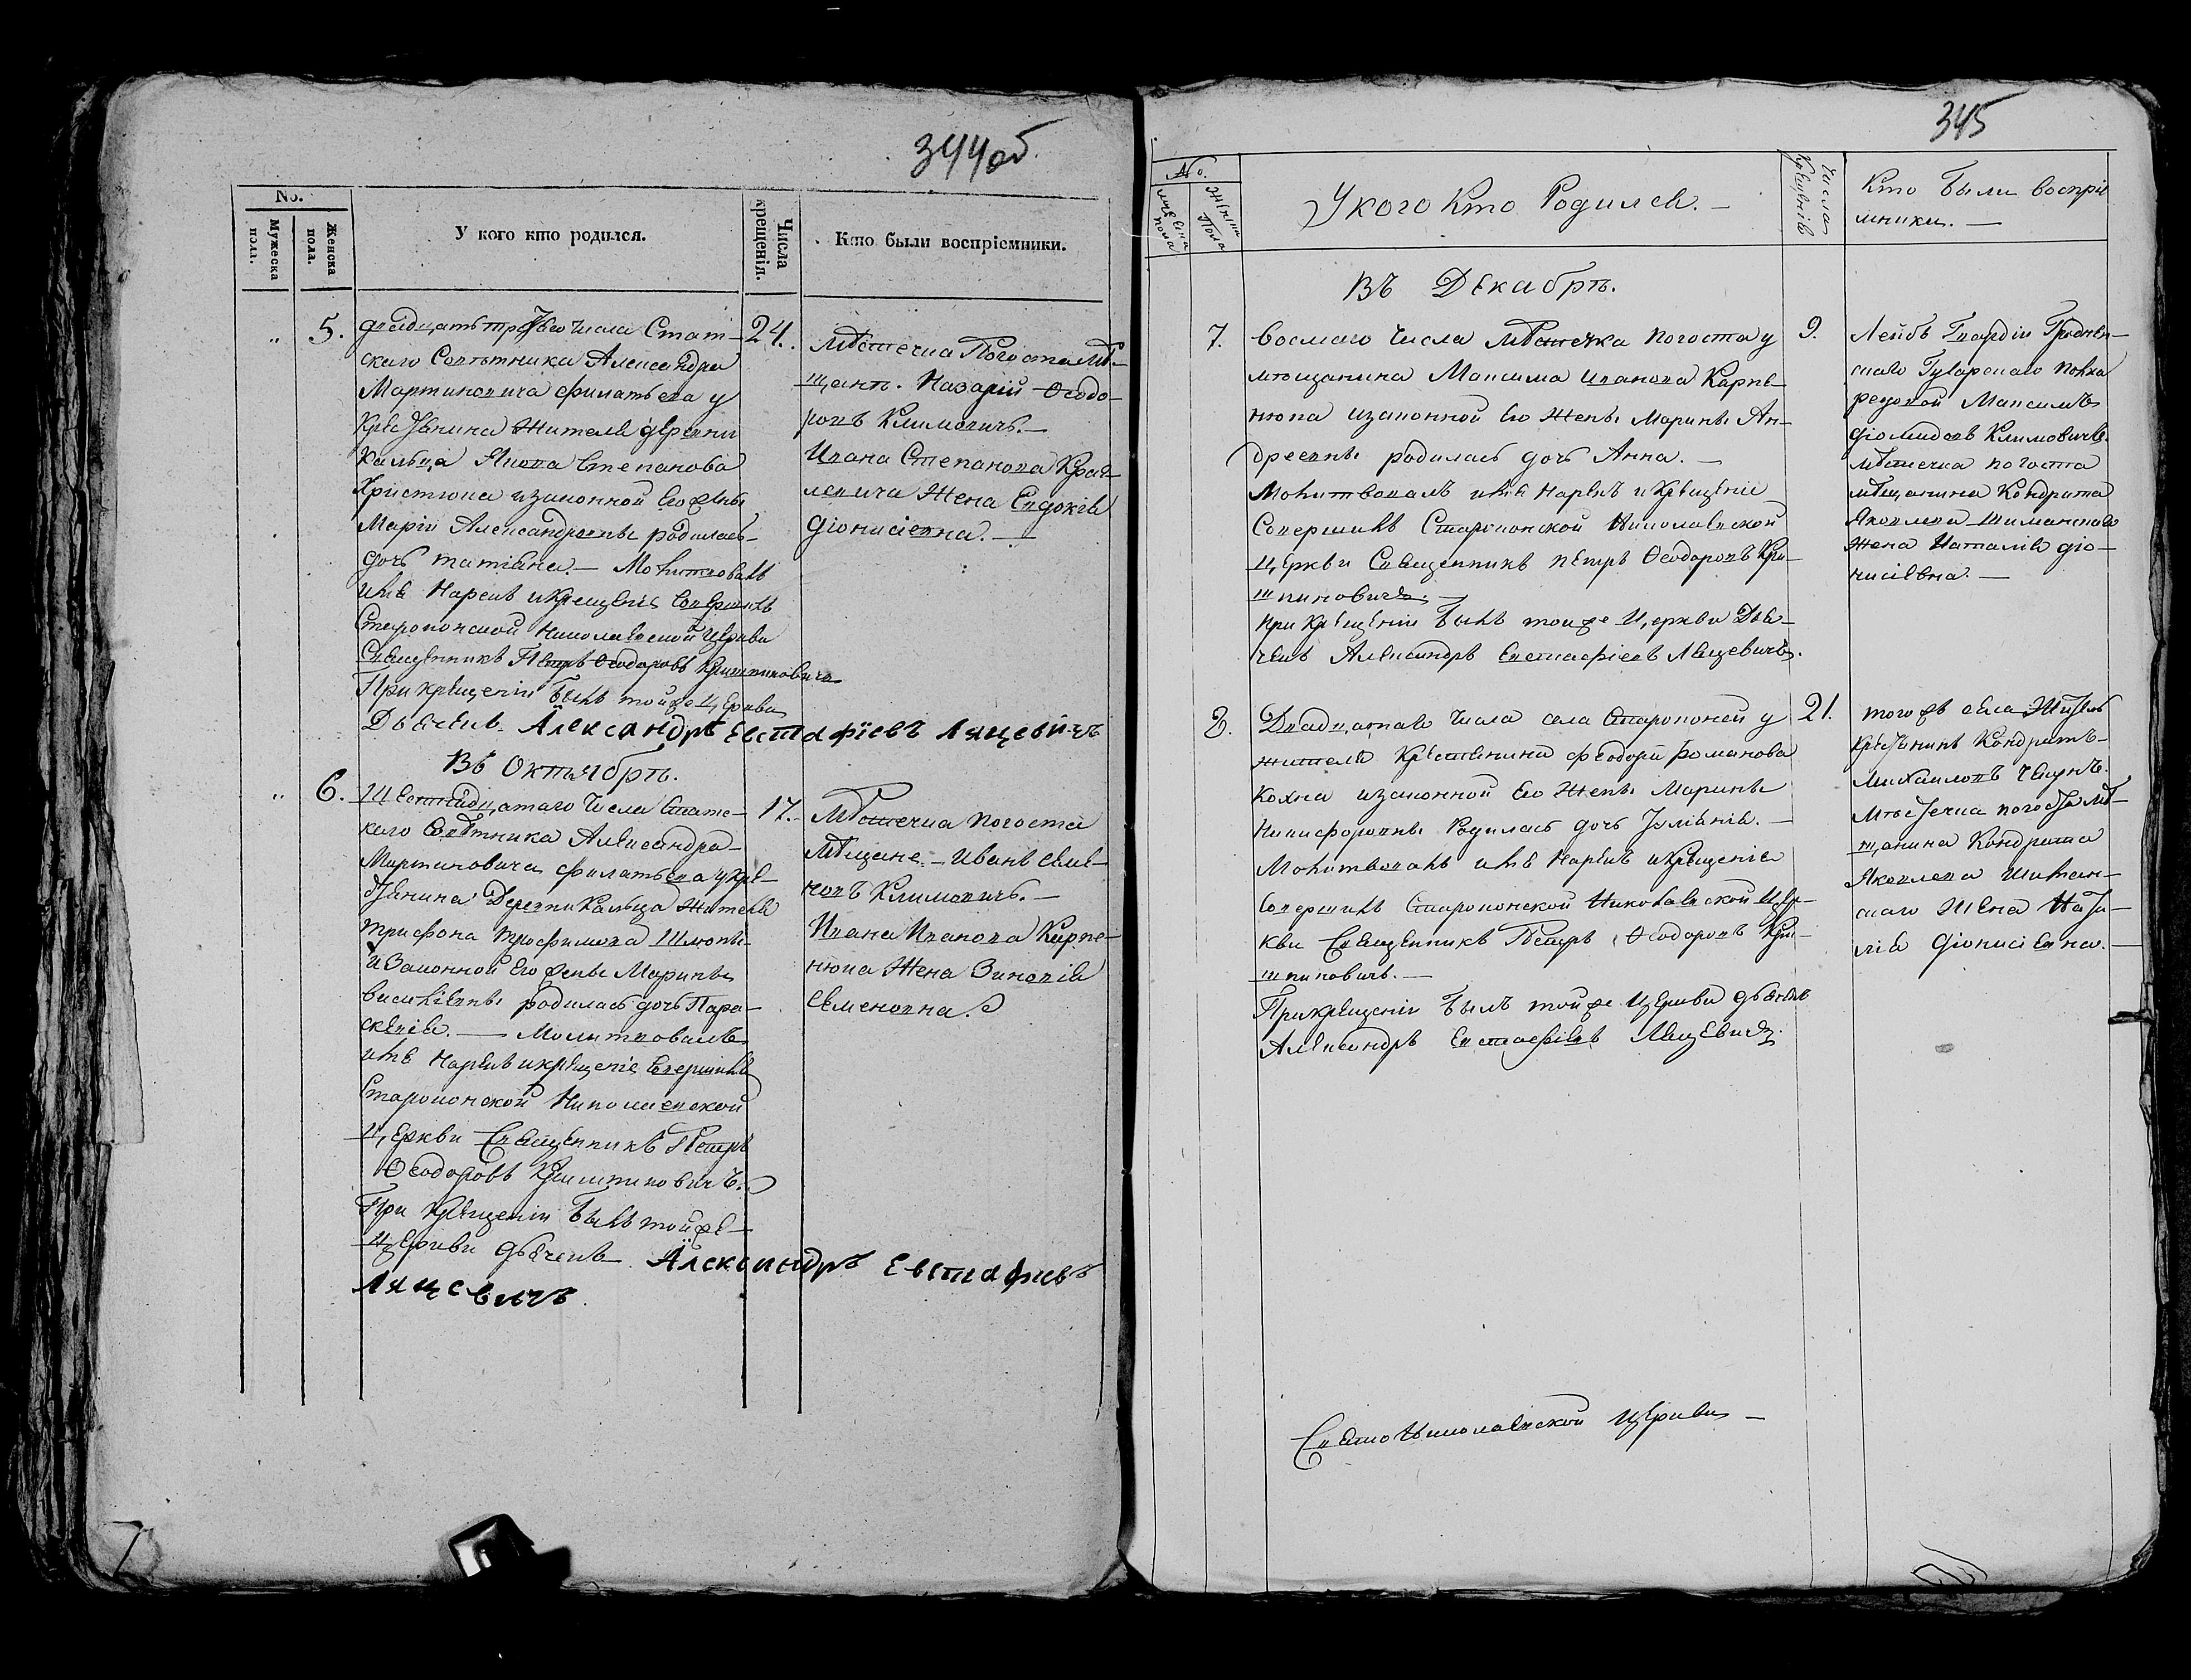 344об.
No.
Мужеска пола.
Женска пола.
У кого кто родился.
Числа крещенія.
Кто были воспріємники.
„ 5.
двадцать третьео числа Стат-
скаго Совѣтника Александра
Мартиновича Филатьева у
крестьянина жителя деревни
Кальца Степанова
изаконной его жены
Маріи Александровны родилась
дочь татіана. — Молитвовалъ
имя Нарекъ и крещеніе Совершилъ
Старопонской Николаевской церкви
Священникъ Петръ Ѳеодоровъ
При крещеніи былъ тойже церкви
Дьячекъ Александръ Евстафіевъ Ляцевичъ
24.
мѣстечка Погоста мѣ-
щане. Назарій Ѳеодо-
ровъ Климовичъ. —
Ивана Степанова
жена Евдокія
діонисіевна. —
Въ Октябрѣ.
„ 6.
Шестнадцатаго числа Статс-
каго Совѣтника Александра
Мартиновича Филатьева укре-
стьянина деревни Кальца жителя
Трифона Трофимова
изаконной его жены Марины
василіевны родилась дочь Пара-
скевія. — Молитвовалъ
имя Нарекъ икрещеніе Совершилъ
Старопонской Николаевской
Церкви Священникъ Петръ
Ѳеодоровъ
При крещеніи былъ тойже
церкви дьячекъ Александръ Евстафіевъ
Ляцевичъ
17.
мѣстечка погоста
мѣщане — Иванъ
Климовичъ. —
Ивана Иванова Карпе-
нюка жена Зиновія
Семеновна.
345
No.
Мужеска пола
Женска пола
У кого кто Родился. —
Числа Крещенія
Кто были воспріе
мники. —
Въ Декабрѣ.
7.
восмаго числа мѣстечка погоста у
мѣщанина Максима Иванова Карпе-
нюка изаконной его жены Марины Ан-
дреевны родилась дочь Анна. —
Молитвовалъ имя Нарекъ и Крещеніе
Совершилъ Старопонской Николаевской
Церкви Священникъ Петръ Ѳеодоровъ
При крещеніи былъ тойже Церкви Дья-
чекъ Александръ Евстафіевъ Ляцевичъ.
9.
Лейбъ Гвардіи Гроднен-
скаго Гусарскаго полка
редовой Максимъ
діомидовъ Климовичъ.
мѣстечка погоста
мѣщанина Кондрата
Яковлева Шиманскаго
жена Наталія діо-
нисіевна. —
8.
Двадцатаго числа села Старопоней у
жителя крестянина Феодора Романова
Кохна изаконной его жены Марины
Никифоровны Родилась дочь Іуліанія. —
Молитвовалъ имя Нарекъ икрещеніе
Совершилъ Старопонской Николаевской Цер-
кви Священникъ Петръ Ѳеодоровъ
При крещеніи былъ тойже церкви дьячекъ
Александръ Евстафіевъ Ляцевичъ.
21.
тогожъ села житель
крестьянинъ Кондратъ
Михаиловъ
Мѣстечка погоста мѣ-
щанина Кондрата
Яковлева Шиман-
скаго жена Ната-
лія Діонисіевна. —
Свято Николаевской церкви —